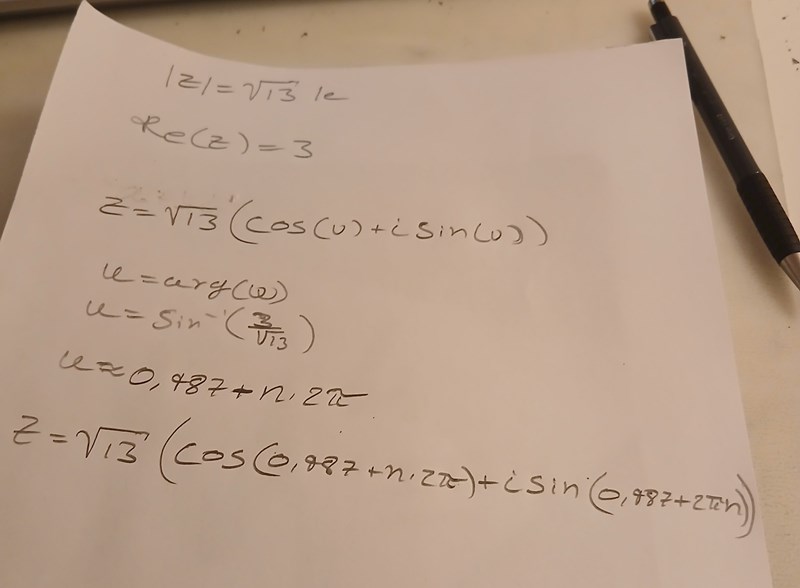 |z| = √13 le
Re(z) = 3
z = √13 (cos(v) + i sin(v))
u = arg(w)
u = sin⁻¹(3/√13)
u ≈ 0,987 + n · 2π
z = √13 (cos(0,987 + n · 2π) + i sin(0,987 + 2πn))